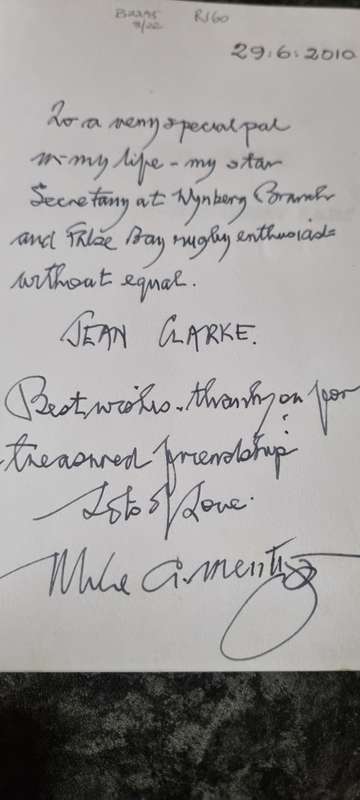 R160
29.6.2010
To a very special pal
in my life - my star
Secretary at Wynberg Branch
and False Bay rugby enthusiast
without equal.
JEAN CLARKE.
Best wishes - thank you for
treasured friendship
Lots of Love.
Mike G.